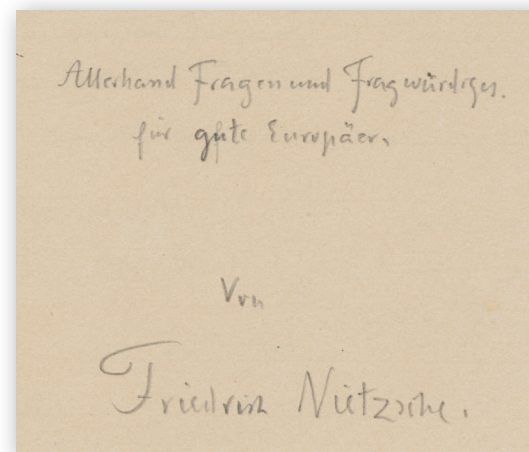 Allerhand Fragen und Fragwürdiges.
für gute Europäer.
Von
Friedrich Nietzsche.